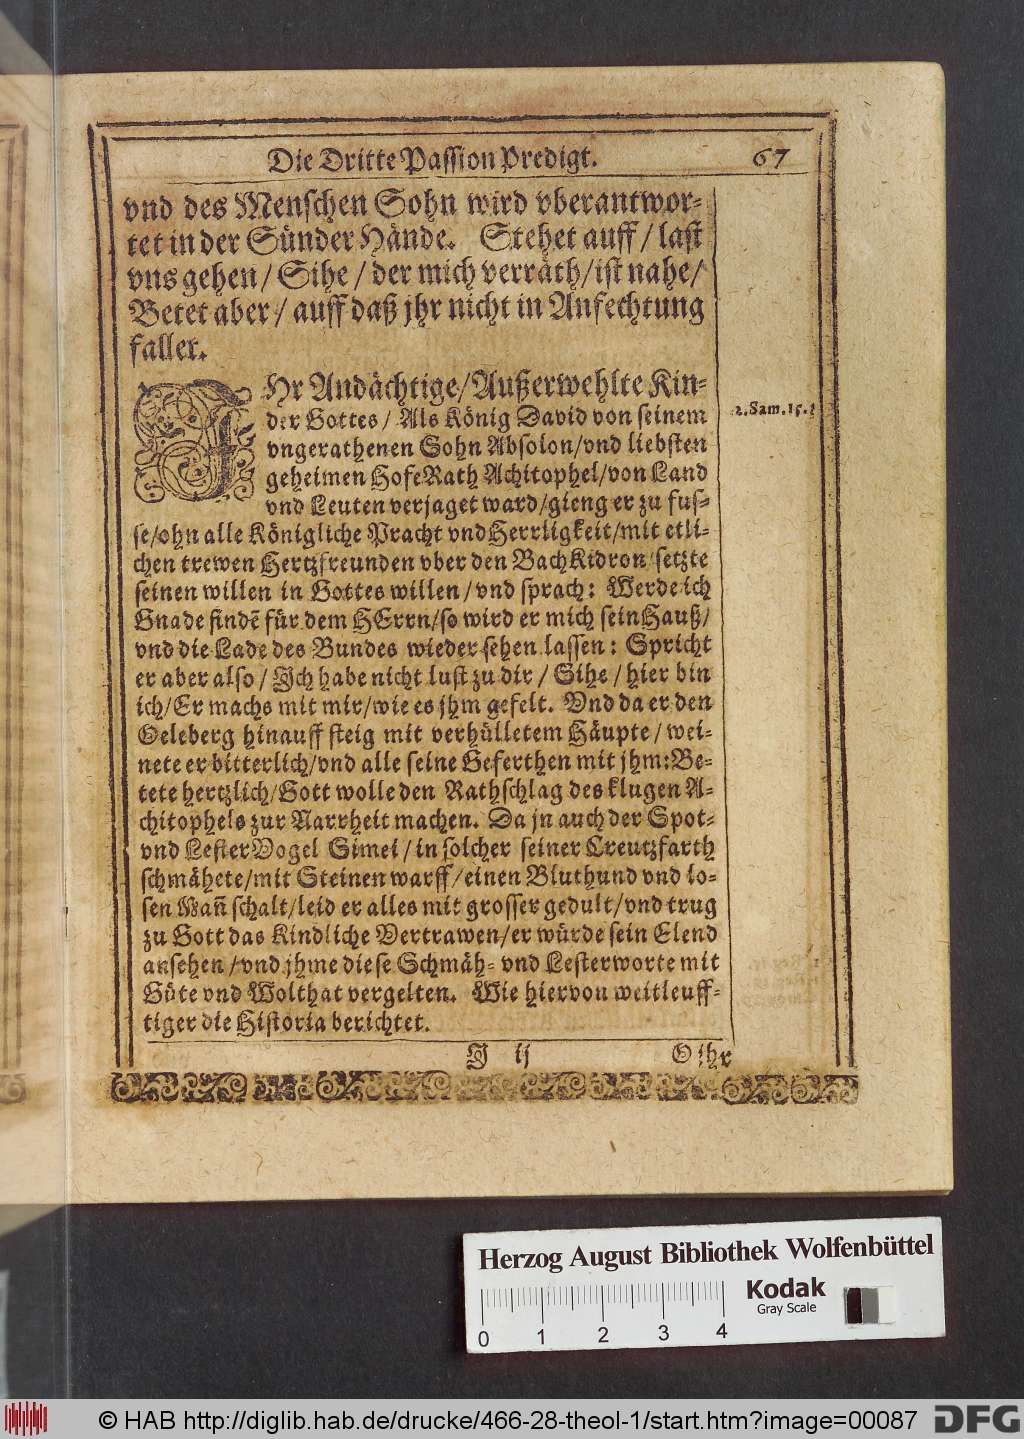 Die Dritte Passion Predigt. 67
vnd des Menschen Sohn wird vberantwor-
tet in der Sünder Hände. Stehet auff / last
vns gehen / Sihe / der mich verräth / ist nahe /
Betet aber / auff daß jhr nicht in Anfechtung
fallet.
IHr Andächtige / Außerwehlte Kin-
der Gottes / Als König David von seinem
2. Sam. 15.
vngerathenen Sohn Absolon / vnd liebsten
geheimen HofeRath Achitophel / von Land
vnd Leuten verjaget ward / gieng er zu fus-
se / ohn alle Königliche Pracht vnd Herrligkeit / mit etli-
chen trewen Hertzfreunden vber den Bach Kidron / setzte
seinen willen in Gottes willen / vnd sprach: Werde ich
Gnade findē für dem HErrn / so wird er mich sein Hauß /
vnd die Lade des Bundes wieder sehen lassen: Spricht
er aber also / Ich habe nicht lust zu dir / Sihe / hier bin
ich / Er machs mit mir / wie es jhm gefelt. Vnd da er den
Oeleberg hinauff steig mit verhülletem Häupte / wei-
nete er bitterlich / vnd alle seine Geferthen mit jhm: Be-
tete hertzlich / Gott wolle den Rathschlag des klugen A-
chitophels zur Narrheit machen. Da jn auch der Spot-
vnd LesterVogel Simei / in solcher seiner Creutzfarth
schmähete / mit Steinen warff / einen Bluthund vnd lo-
sen Mañ schalt / leid er alles mit grosser gedult / vnd trug
zu Gott das Kindliche Vertrawen / er würde sein Elend
ansehen / vnd jhme diese Schmäh- vnd Lesterworte mit
Güte vnd Wolthat vergelten. Wie hiervon weitleuff-
tiger die Historia berichtet.
J ij O jhr
Herzog August Bibliothek Wolfenbüttel
Kodak
Gray Scale
0 1 2 3 4
© HAB http://diglib.hab.de/drucke/466-28-theol-1/start.htm?image=00087
DFG